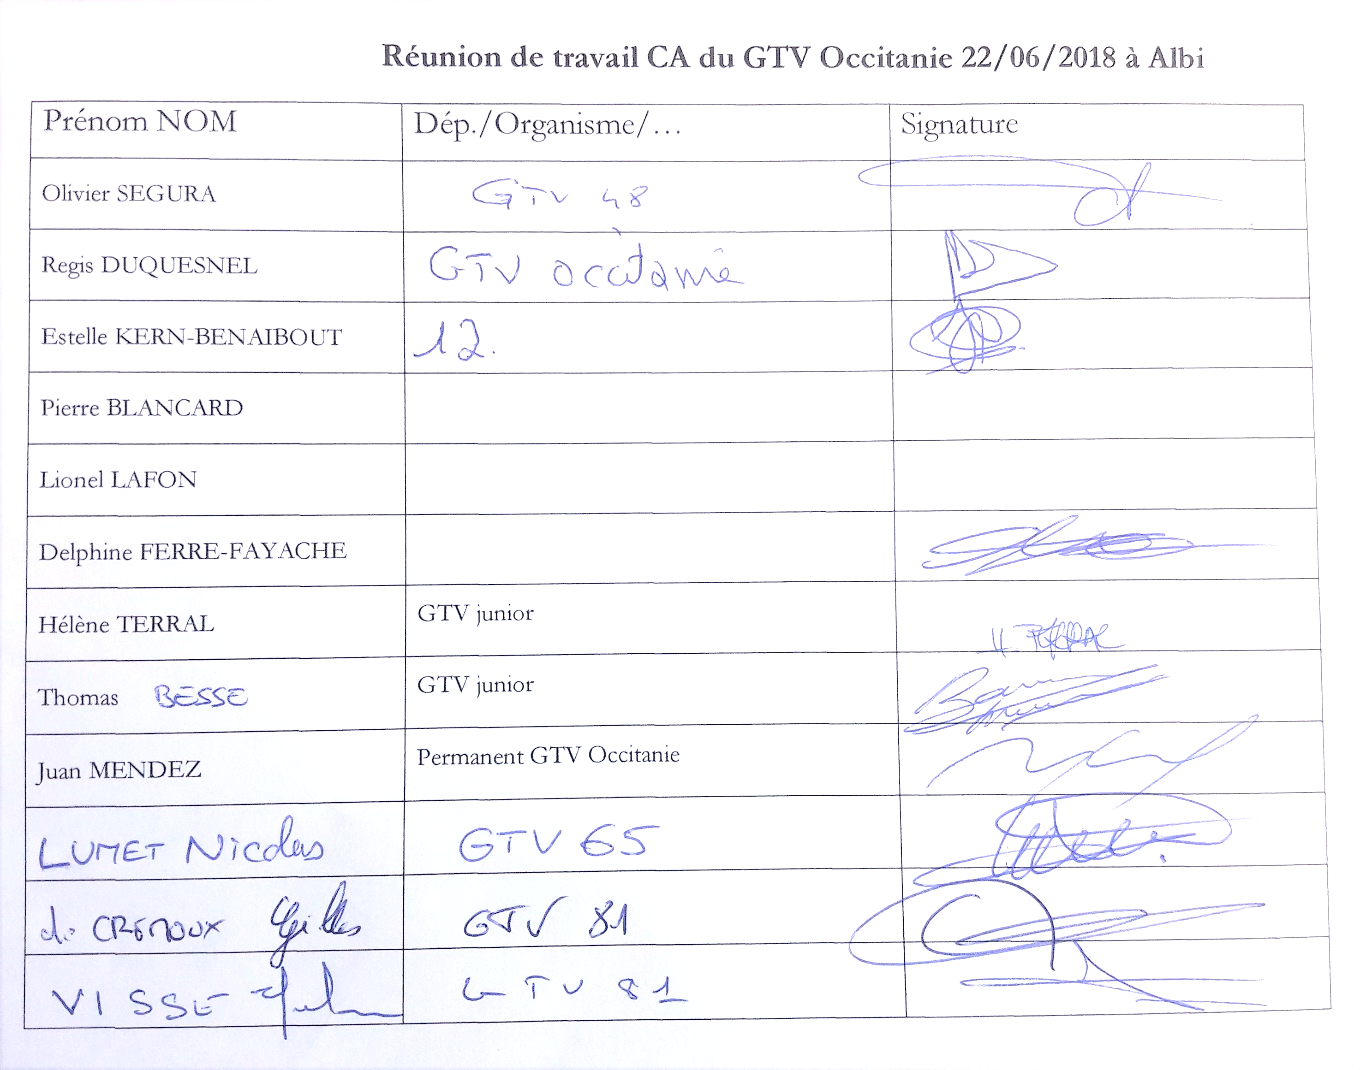 Réunion de travail CA du GTV Occitanie 22/06/2018 à Albi
Prénom NOM Dép./Organisme/… Signature
Olivier SEGURA GTV 48
Regis DUQUESNEL GTV Occitanie
Estelle KERN-BENAIBOUT 12.
Pierre BLANCARD
Lionel LAFON
Delphine FERRE-FAYACHE
Hélène TERRAL GTV junior H. TERRAL
Thomas BESSE GTV junior
Juan MENDEZ Permanent GTV Occitanie
LUMET Nicolas GTV 65
de CREMOUX Gilles GTV 81
VISSE GTV 81